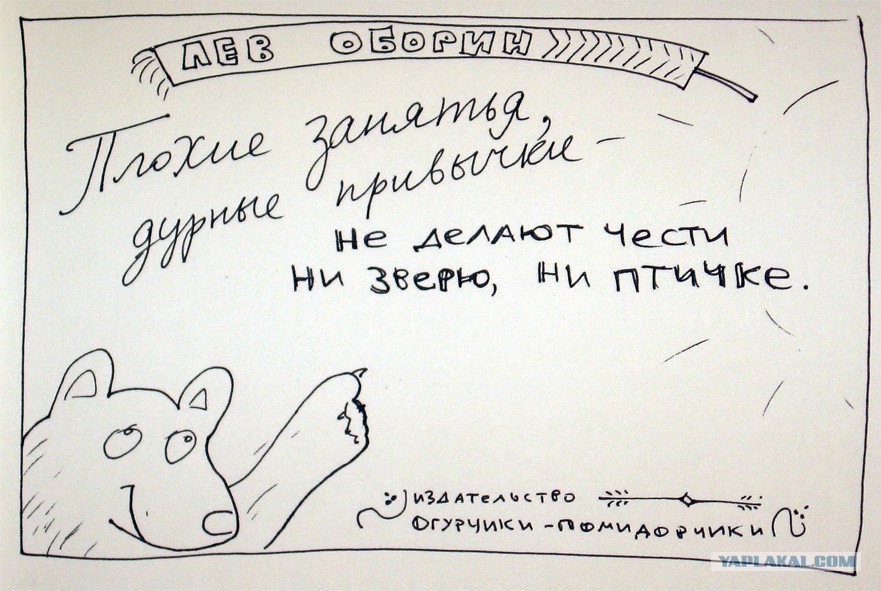 ЛЕВ ОБОРИН
Плохие занятья,
дурные привычки –
не делают чести
ни зверю, ни птичке.
издательство
огурчики-помидорчики
YAPLAKAL.COM